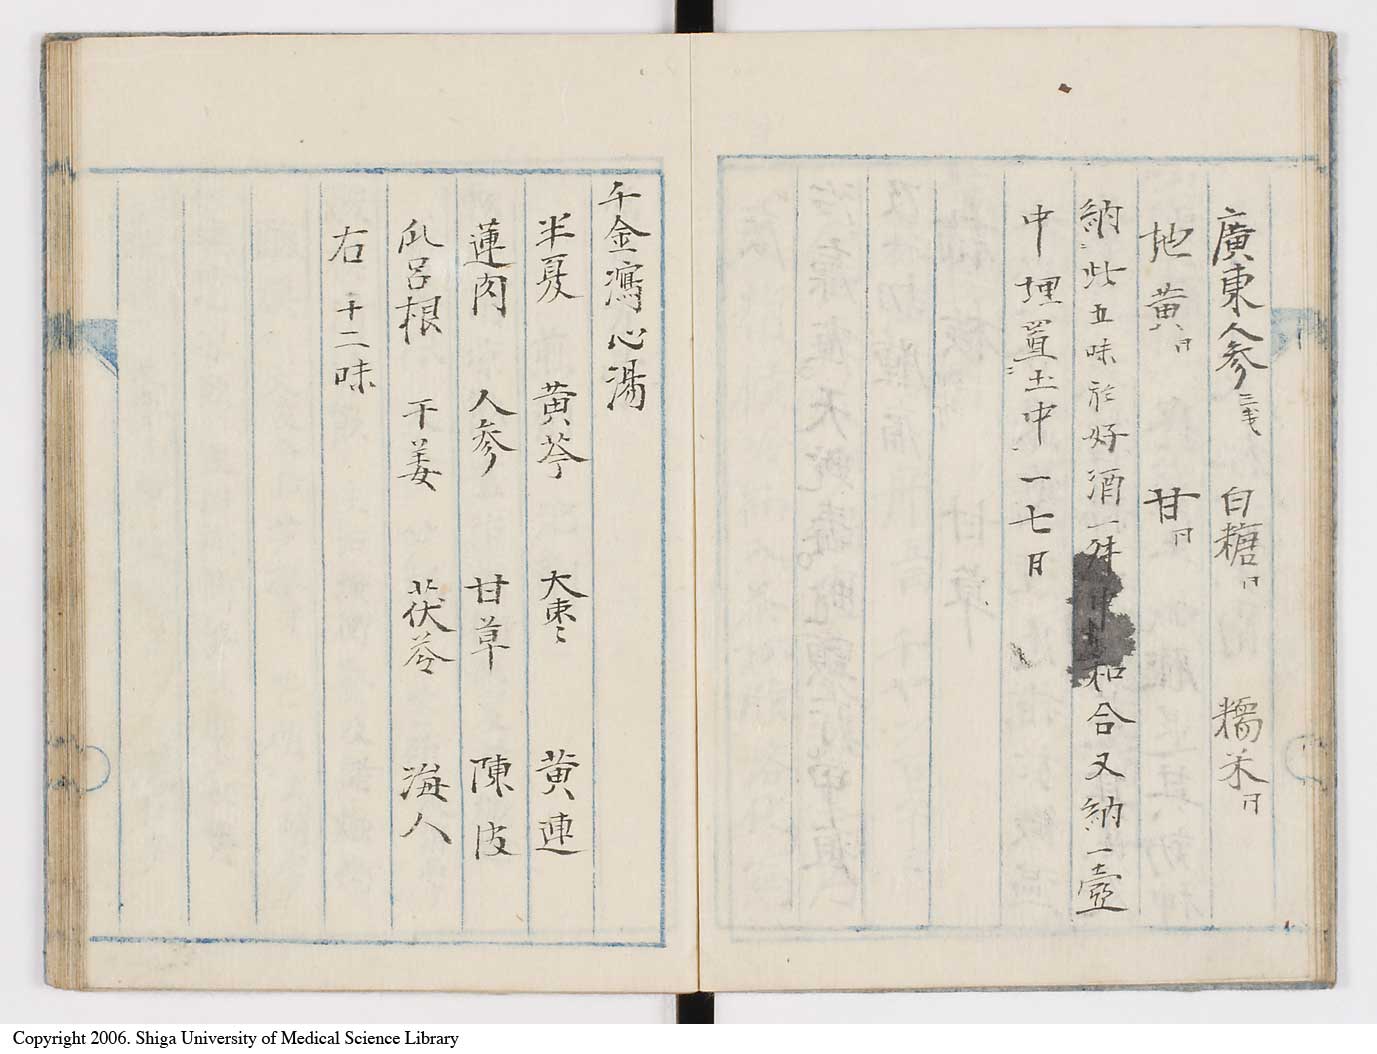 廣東人参三戋 白糖〃 糯米〃
地黄〃 甘〃
納此五味於好酒一舛中 和合又納一壺
中埋置土中一七日
千金瀉心湯
半夏 黄芩 大棗 黄連
蓮肉 人参 甘草 陳皮
瓜呂根 干姜 茯苓 海人
右 十二味
Copyright 2006. Shiga University of Medical Science Library